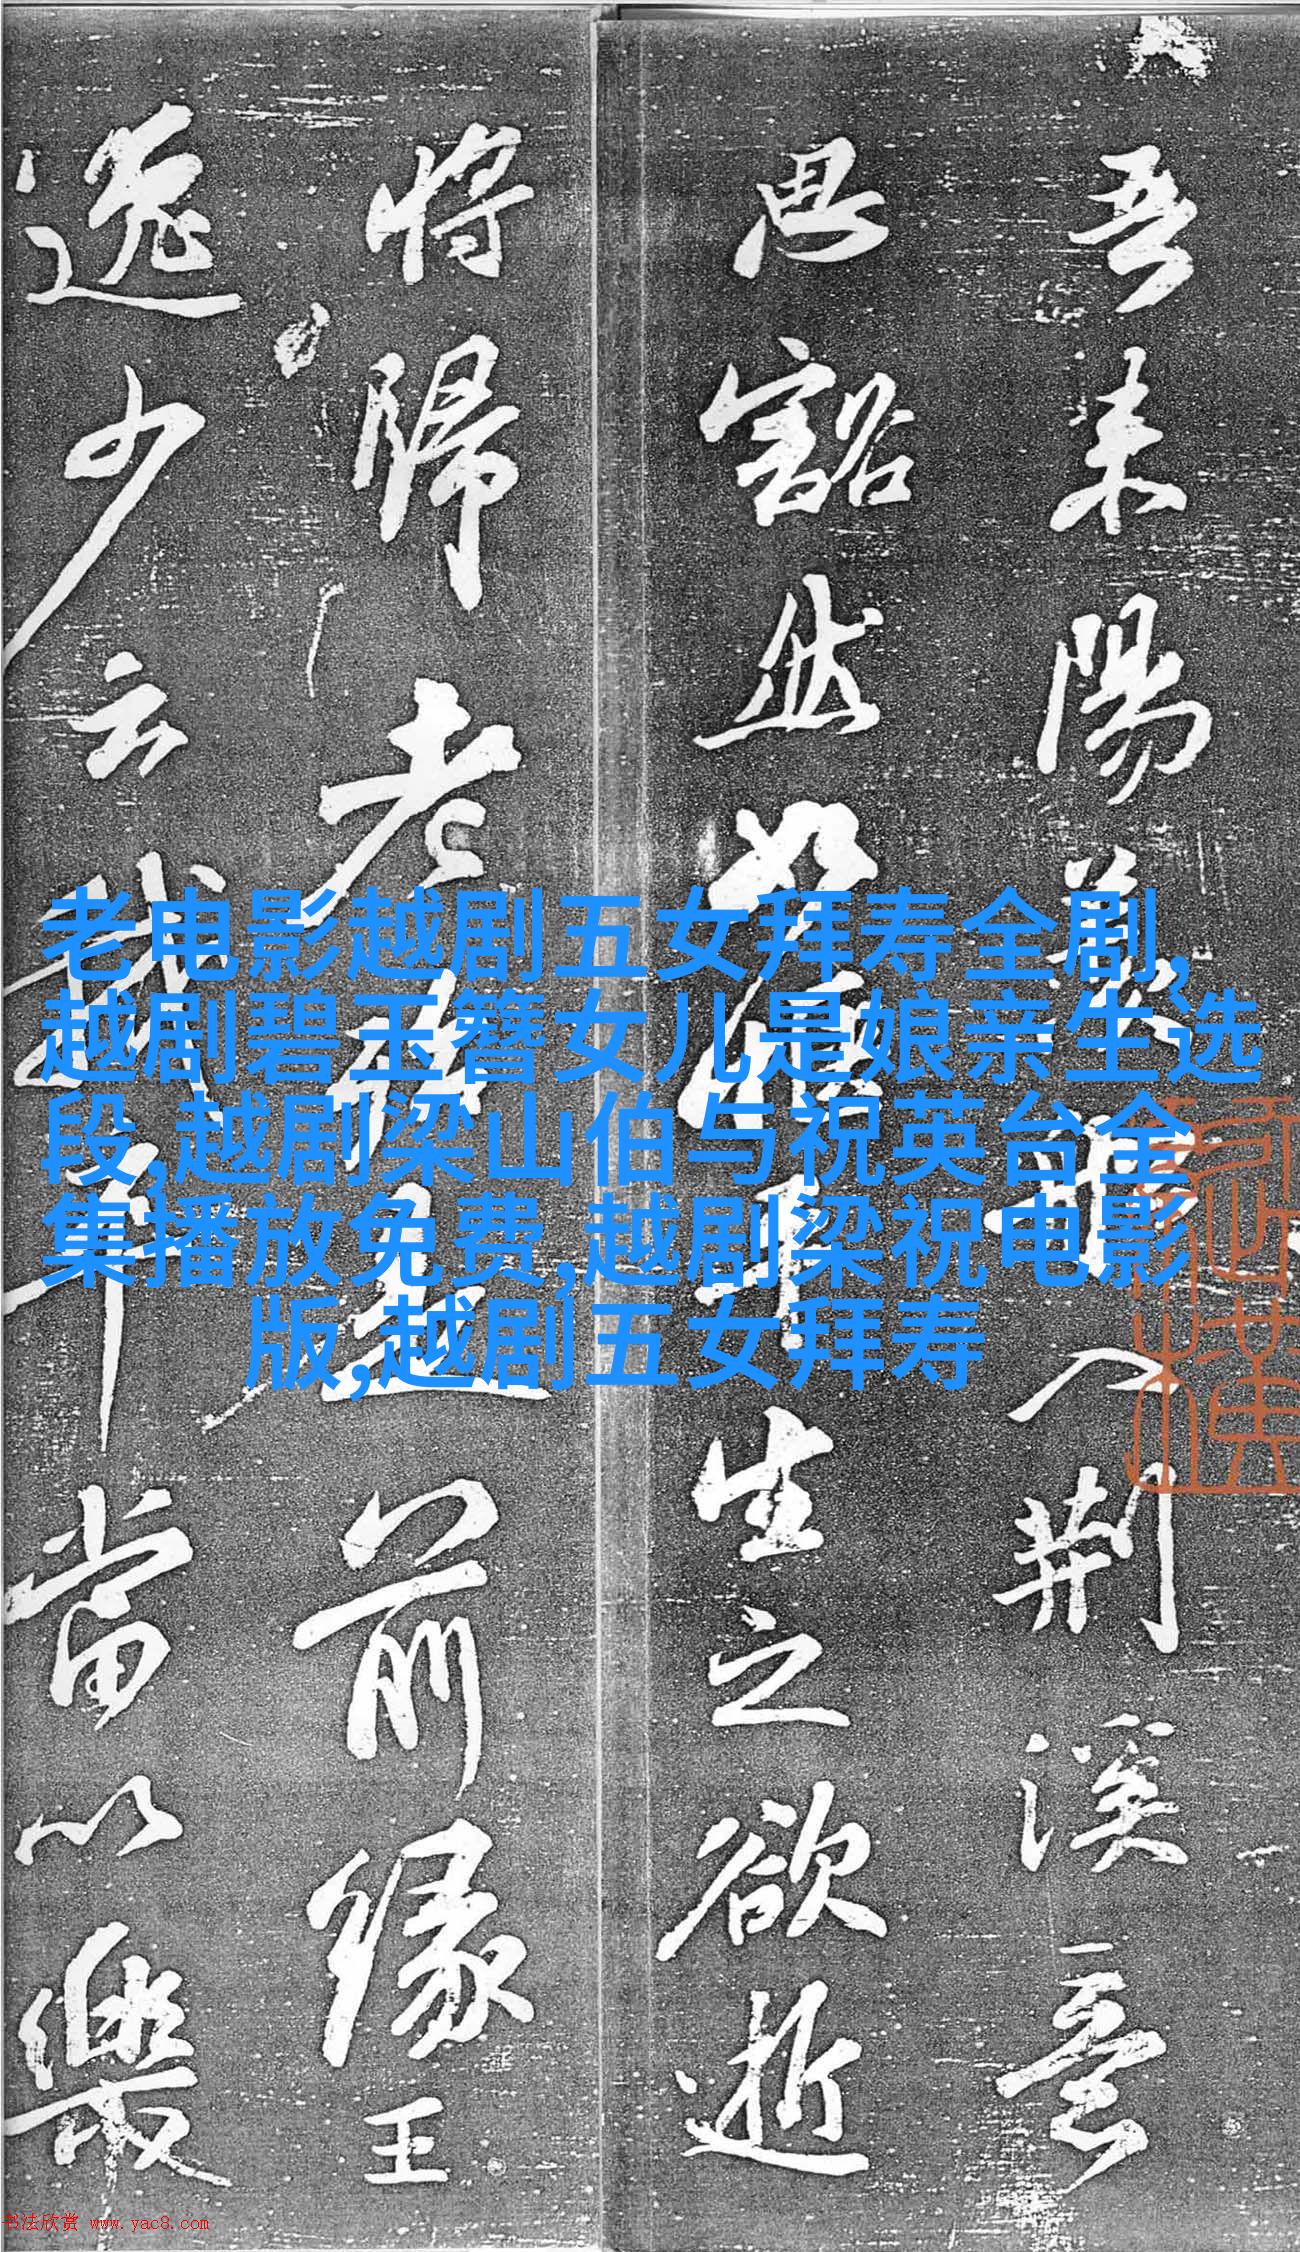 老电影越剧五女拜寿全剧,
越剧碧玉簪女儿是娘亲生选
段,越剧梁山伯与祝英台全
集播放免费,越剧梁祝电影
版,越剧五女拜寿
吾来陽羡船入荆溪意
思豁然如惬平生之欲逝
将歸老殆是前緣王
逸少云我卒當以樂
书法欣赏 www.yac8.com